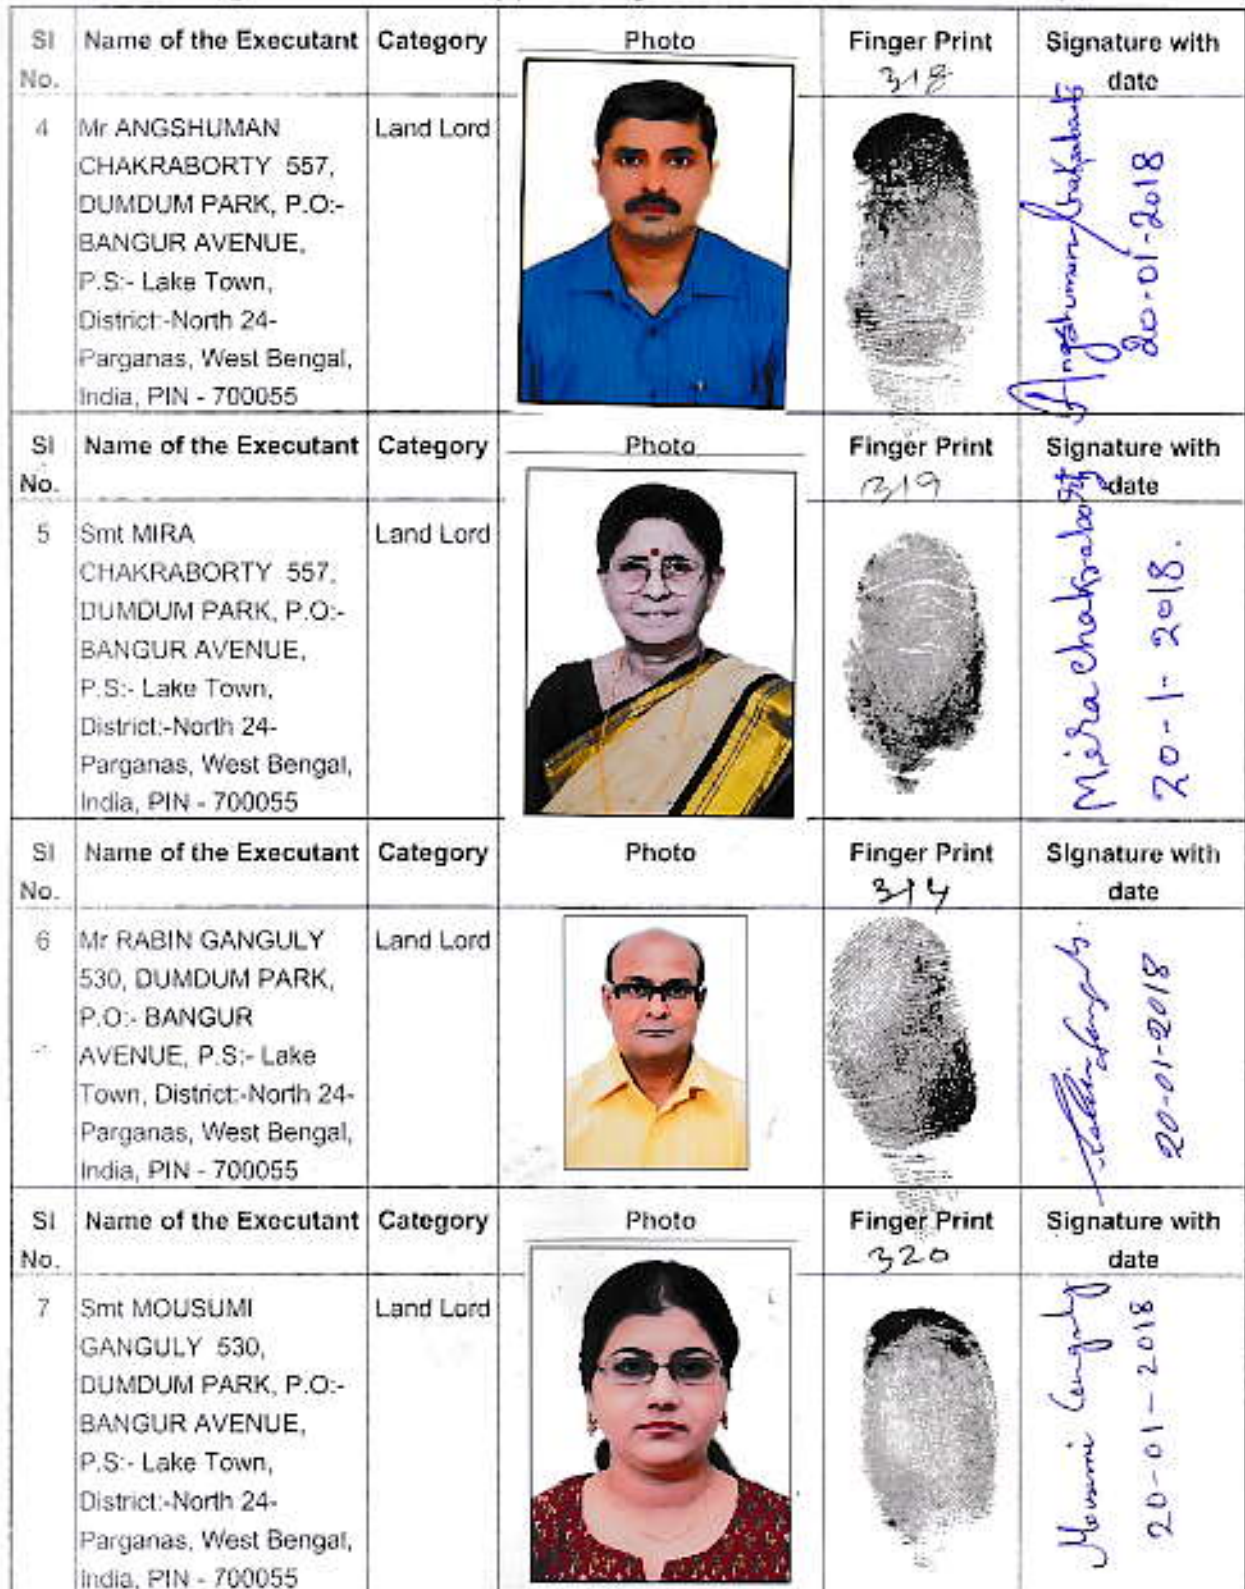 Sl No. Name of the Executant Category Photo Finger Print Signature with date
318
4 Mr ANGSHUMAN Land Lord
CHAKRABORTY 557,
DUMDUM PARK, P.O:-
BANGUR AVENUE,
P.S:- Lake Town,
District:-North 24-
Parganas, West Bengal,
India, PIN - 700055
Angshuman Chakraborty
20-01-2018
Sl No. Name of the Executant Category Photo Finger Print Signature with date
319
5 Smt MIRA Land Lord
CHAKRABORTY 557,
DUMDUM PARK, P.O:-
BANGUR AVENUE,
P.S:- Lake Town,
District:-North 24-
Parganas, West Bengal,
India, PIN - 700055
Mira Chakraborty
20-1-2018.
Sl No. Name of the Executant Category Photo Finger Print Signature with date
314
6 Mr RABIN GANGULY Land Lord
530, DUMDUM PARK,
P.O:- BANGUR
AVENUE, P.S:- Lake
Town, District:-North 24-
Parganas, West Bengal,
India, PIN - 700055
20-01-2018
Sl No. Name of the Executant Category Photo Finger Print Signature with date
320
7 Smt MOUSUMI Land Lord
GANGULY 530,
DUMDUM PARK, P.O:-
BANGUR AVENUE,
P.S:- Lake Town,
District:-North 24-
Parganas, West Bengal,
India, PIN - 700055
Mousumi Ganguly
20-01-2018